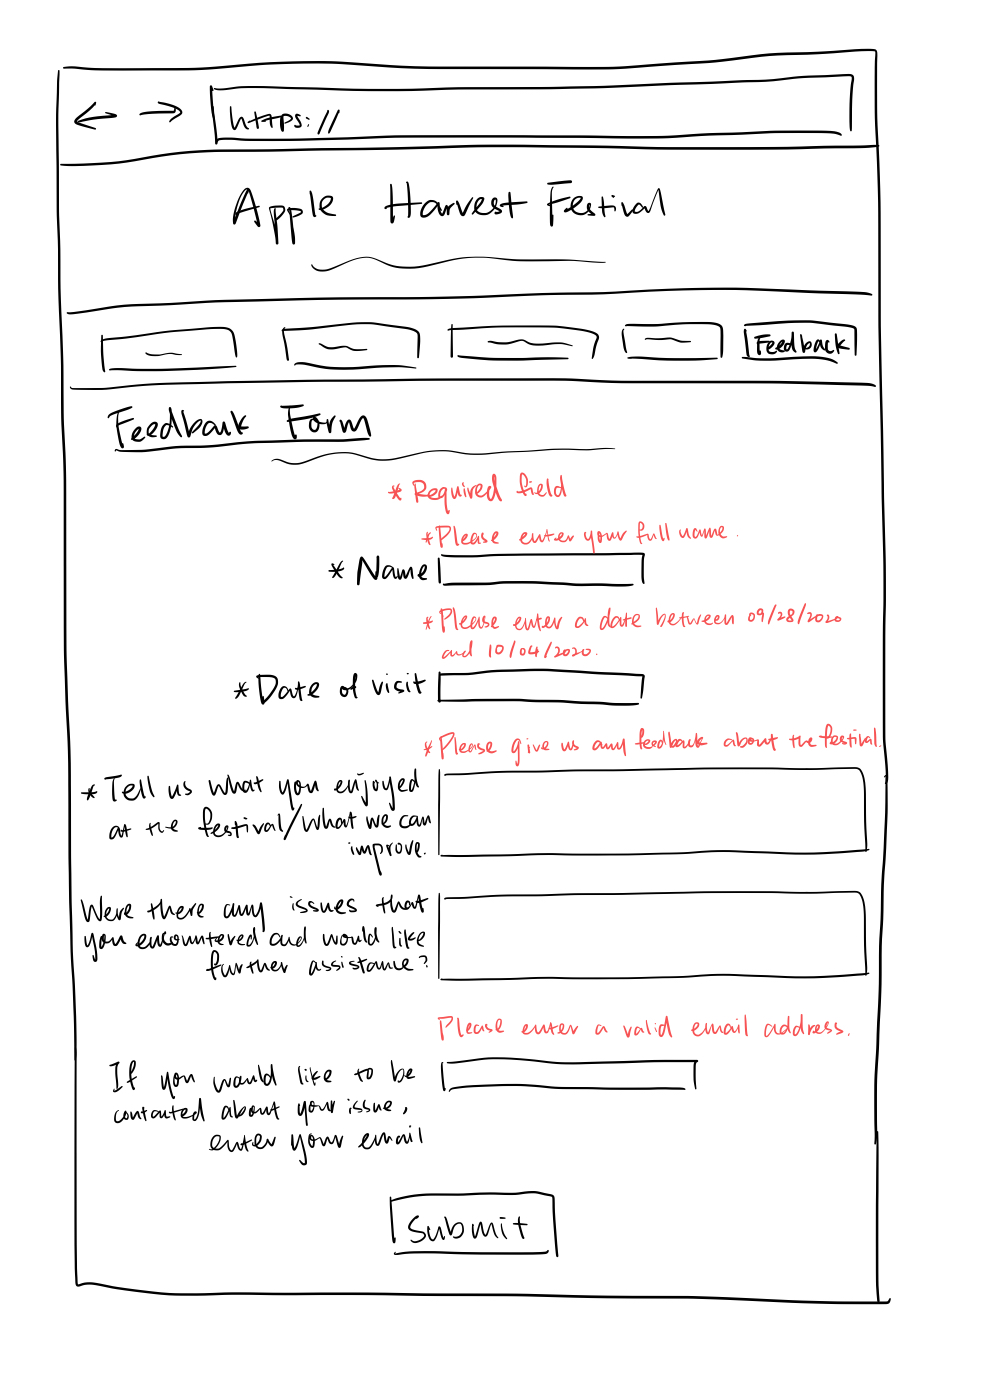 https://
Apple Harvest Festival
Feedback
Feedback Form
* Required field
* Please enter your full name.
* Name
* Please enter a date between 09/28/2020
and 10/04/2020.
* Date of visit
* Please give us any feedback about the festival.
* Tell us what you enjoyed
at the festival/what we can
improve.
Were there any issues that
you encountered and would like
further assistance?
Please enter a valid email address.
If you would like to be
contacted about your issue,
enter your email
Submit